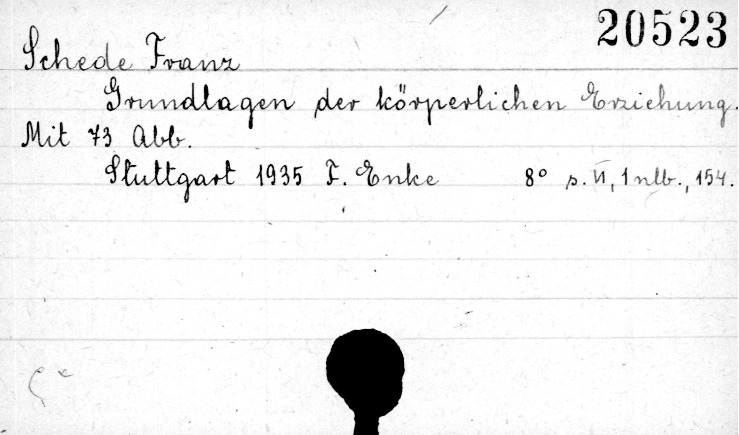 20523
Schede Franz
Grundlagen der körperlichen Erziehung.
Mit 73 Abb.
Stuttgart 1935 F. Enke 8° s. VI, 1 nlb., 154.